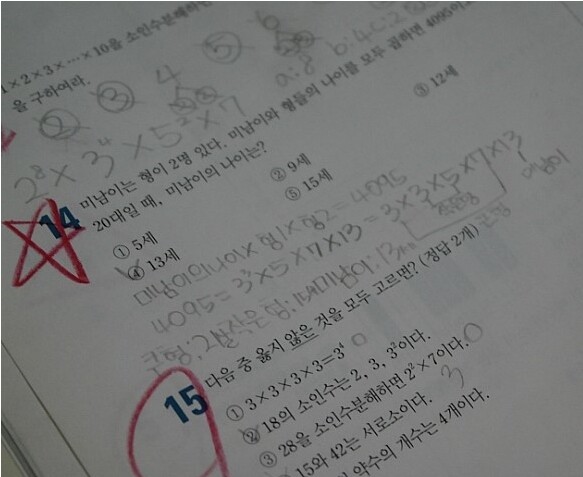 1×2×3×…×10을 소인수분해하면
을 구하여라.
② ③ 4 ⑤ 6
a:8 b:4 c:2
2⁸×3⁴×5²×7
14 미남이는 형이 2명 있다. 미남이와 형들의 나이를 모두 곱하면 4095이
20대일 때, 미남이의 나이는?
① 5세 ② 9세 ③ 12세
④ 13세 ⑤ 15세
미남이의나이×형1×형2=4095
4095=3²×5×7×13=3×3×5×7×13
작은형 큰형 미남이
큰형; 21살 작은형; 15세 미남이: 13세
15 다음 중 옳지 않은 것을 모두 고르면? (정답 2개)
① 3×3×3×3=3⁴
② 18의 소인수는 2, 3, 3²이다.
③ 28을 소인수분해하면 2²×7이다.
15와 42는 서로소이다. 3
약수의 개수는 4개이다.